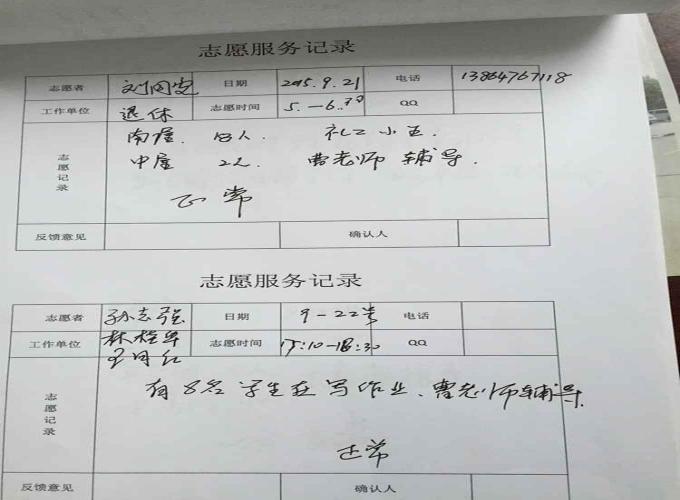 志愿服务记录
志愿者 刘国岂 日期 2015.9.21 电话 13864767118
工作单位 退休 志愿时间 5.—6.30 QQ
南屋. 13人. 礼工小玉.
志愿记录 中屋 2人. 曹老师 辅导.
正常
反馈意见 确认人
志愿服务记录
志愿者 孙志强 日期 9-22号 电话
工作单位 林桂华 志愿时间 17:10-18:30 QQ
王月红
志愿记录 有8名学生在写作业、曹老师辅导.
正常
反馈意见 确认人